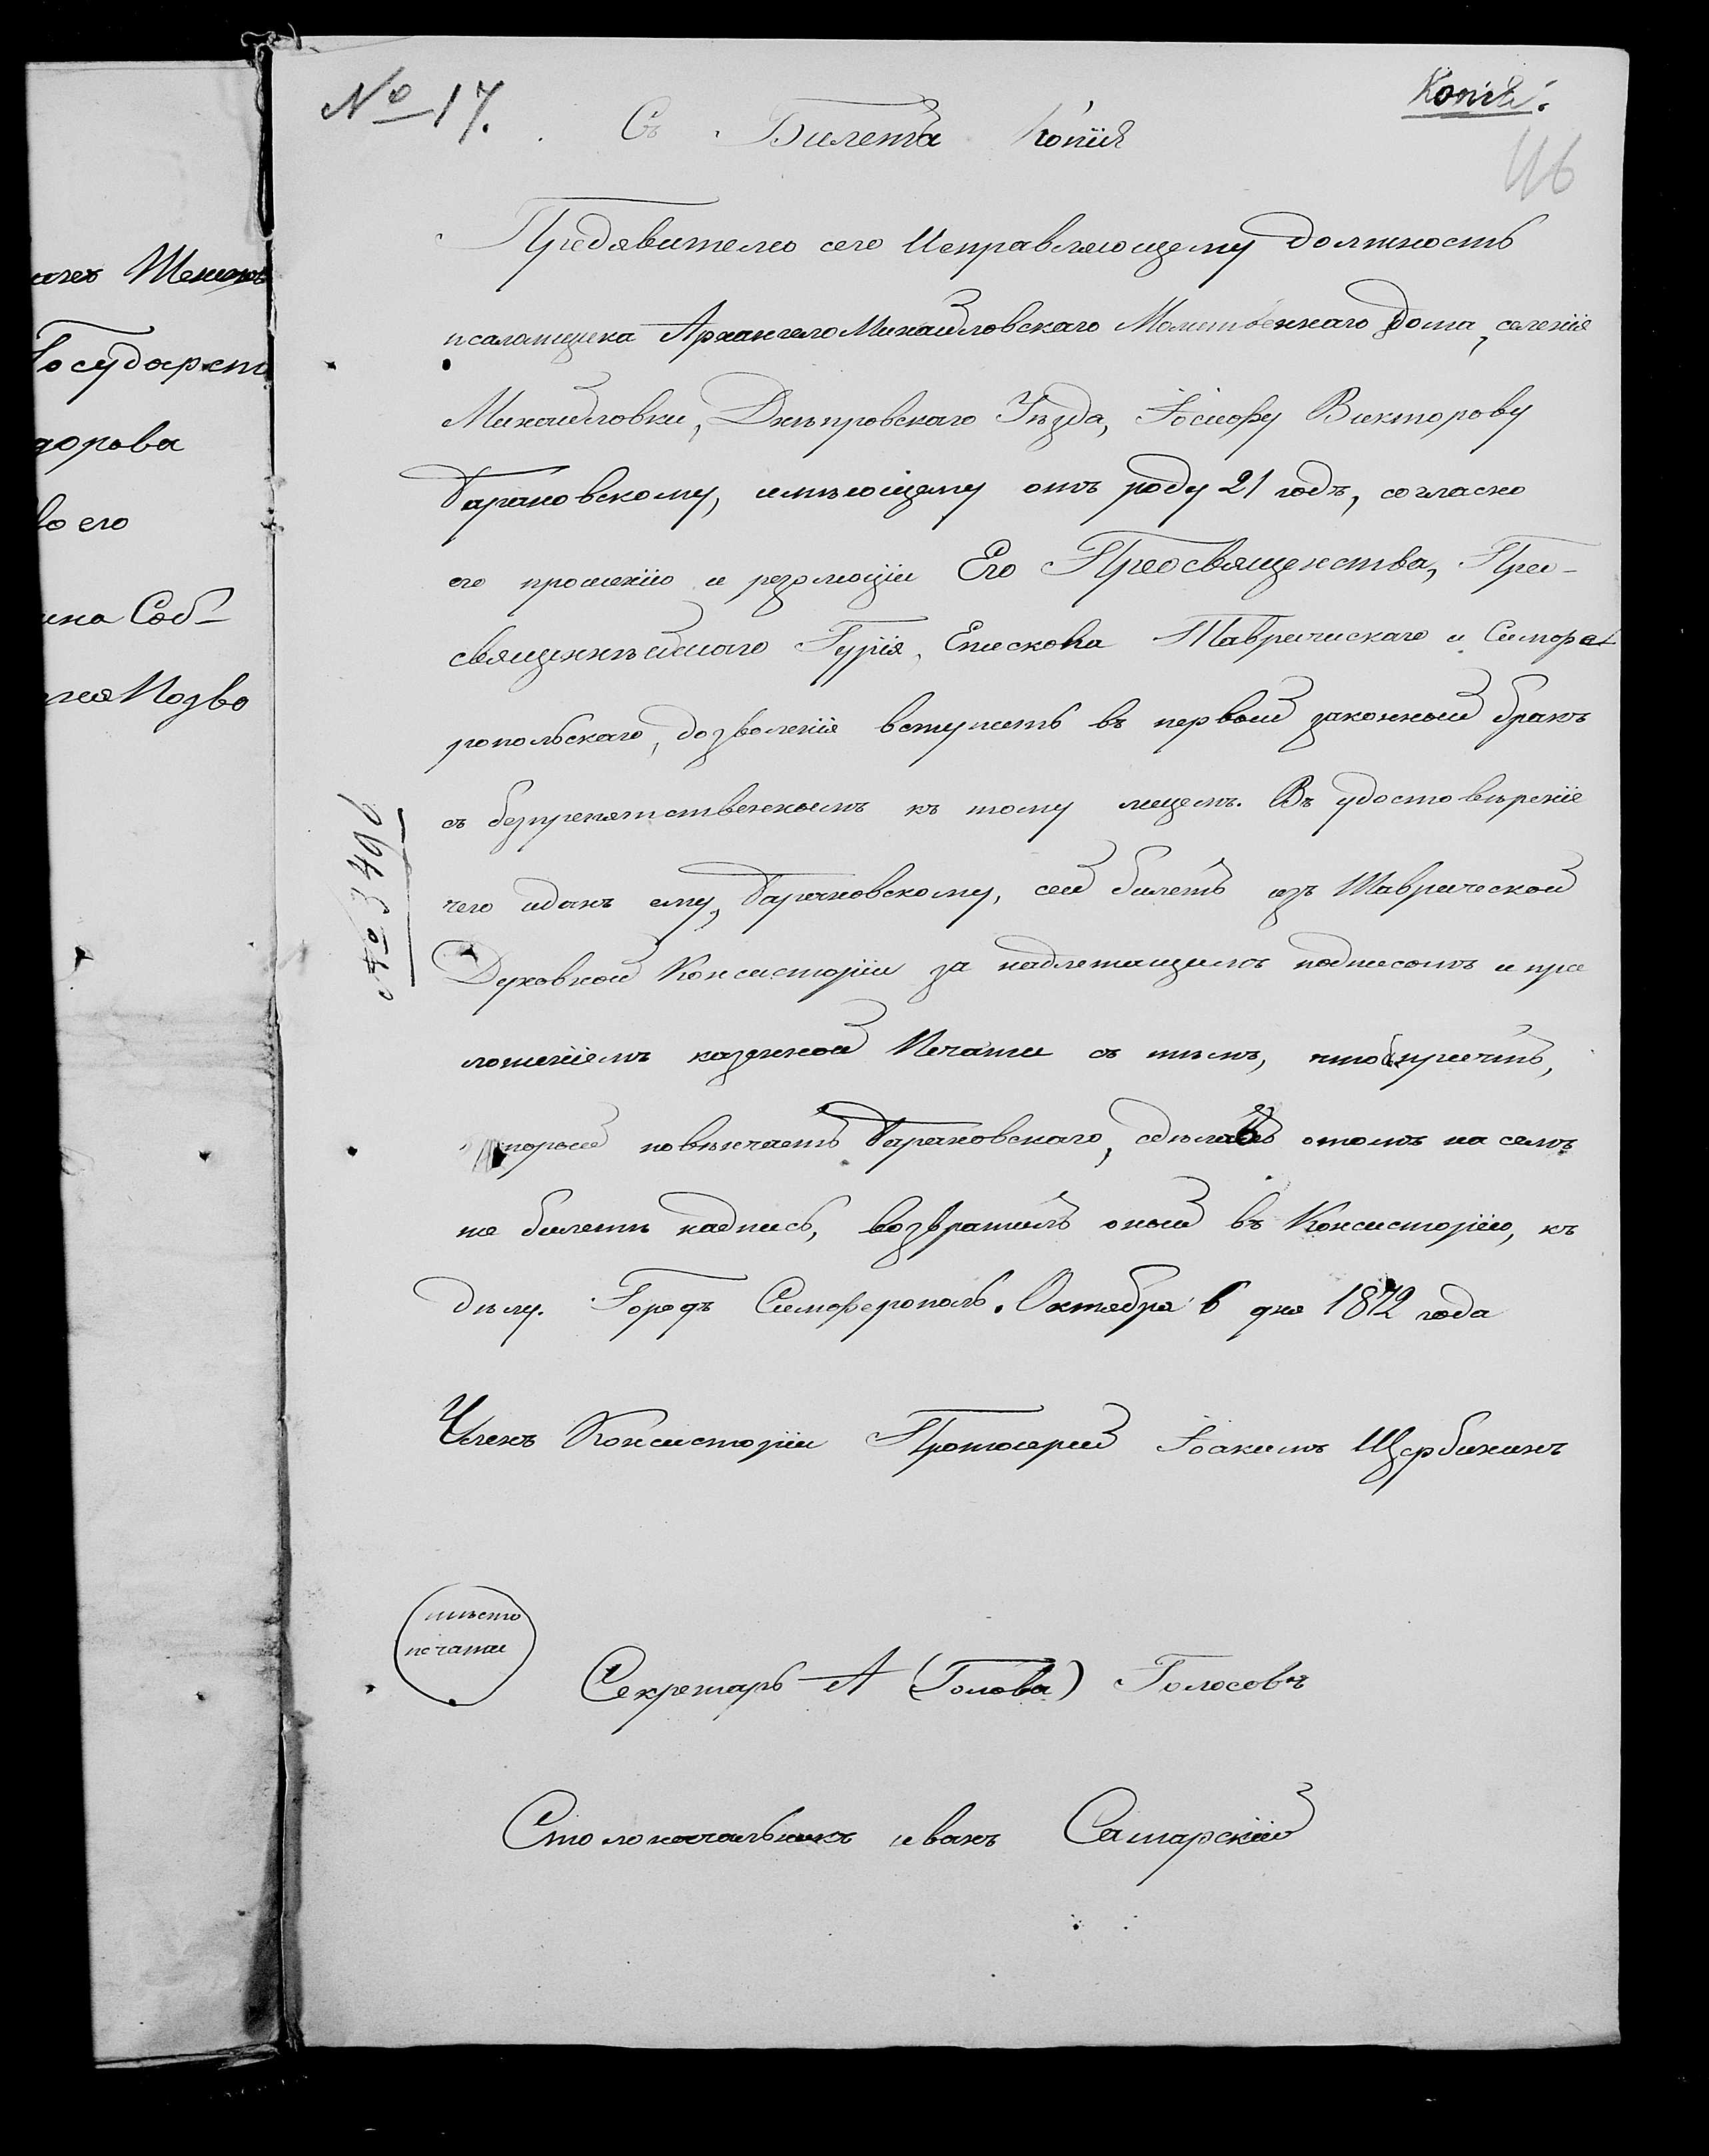 № 17.
Копія.
46
Съ Билета Копія
Предявителю сего Исправляющему должность
псаломщика Архангело Михайловскаго Молитвеннаго дома, селенія
Михайловки, Днѣпровскаго Уѣзда, Іосифу Викторову
Барановскому, имѣющему отъ роду 21 годъ, согласно
его прошенію и резолюціи Его Преосвященства, Прео-
священнѣйшаго Гурія, Епископа Таврическаго и Симфе
ропольскаго, дозволеніе вступить въ первый законный бракъ
съ безпрепятственнымъ къ тому лицемъ. Въ удостовѣреніе
чего и данъ ему, Барановскому, сей билетъ изъ Таврической
Духовной Консисторіи за надлежащимъ подписомъ и при
ложеніемъ казенной Печати съ тѣмъ, чтобы причтъ,
который повѣнчаетъ Барановскаго, сдѣлавъ о томъ на семъ
же билетѣ надпись, возвратилъ оный въ Консисторію, къ
дѣлу. Городъ Симферополь. Октября 6 дня 1872 года
№ 3496
Членъ Консисторіи Протоіерей Іоакимъ Щербининъ
мѣсто
печати
Секретарь А (Голова) Голосовъ
Столоначальникъ иванъ Самарскій
Государст
дорова
во его
ина Соб-
Позво